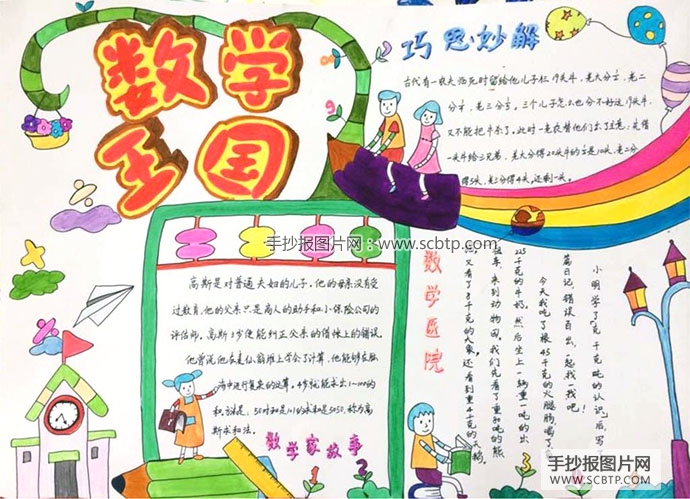 数学
王国
巧思妙解
古代有一农夫临死时留给他儿子们19头牛,老大分½,老二
分¼,老三分⅕,三个儿子怎么也分不好这19头牛,
又不能把牛杀了,此时一老农替他们出了主意:先借
一头牛给三兄弟,老大分得20头牛的½是10头,老二分
得5头,老三分得4头,还剩一头。
手抄报图片网:www.scbtp.com
高斯是对普通夫妇的儿子,他的母亲没有受
过教育,他的父亲只是商人的助手和小保险公司的
评估师,高斯3岁便能纠正父亲的借帐上的错误,
他曾说他在麦仙翁堆上学会了计算,他能够在脑
海中进行复杂的运算,
50对和是101的求和是5050,称为高
斯求和法。
数学家故事
数学医院
小明学了克、千克、吨的认识后,写了
篇日记,错误百出,一起找一找吧!
今天我吃了根45千克的火腿肠,喝了
225千克的牛奶,然后坐上一辆重一吨的出
租车,来到动物园。我们先看了重
又看了8千克的大象,还看到重4千克的天鹅。
1
2
3
手抄报图片网
SCBTP.COM